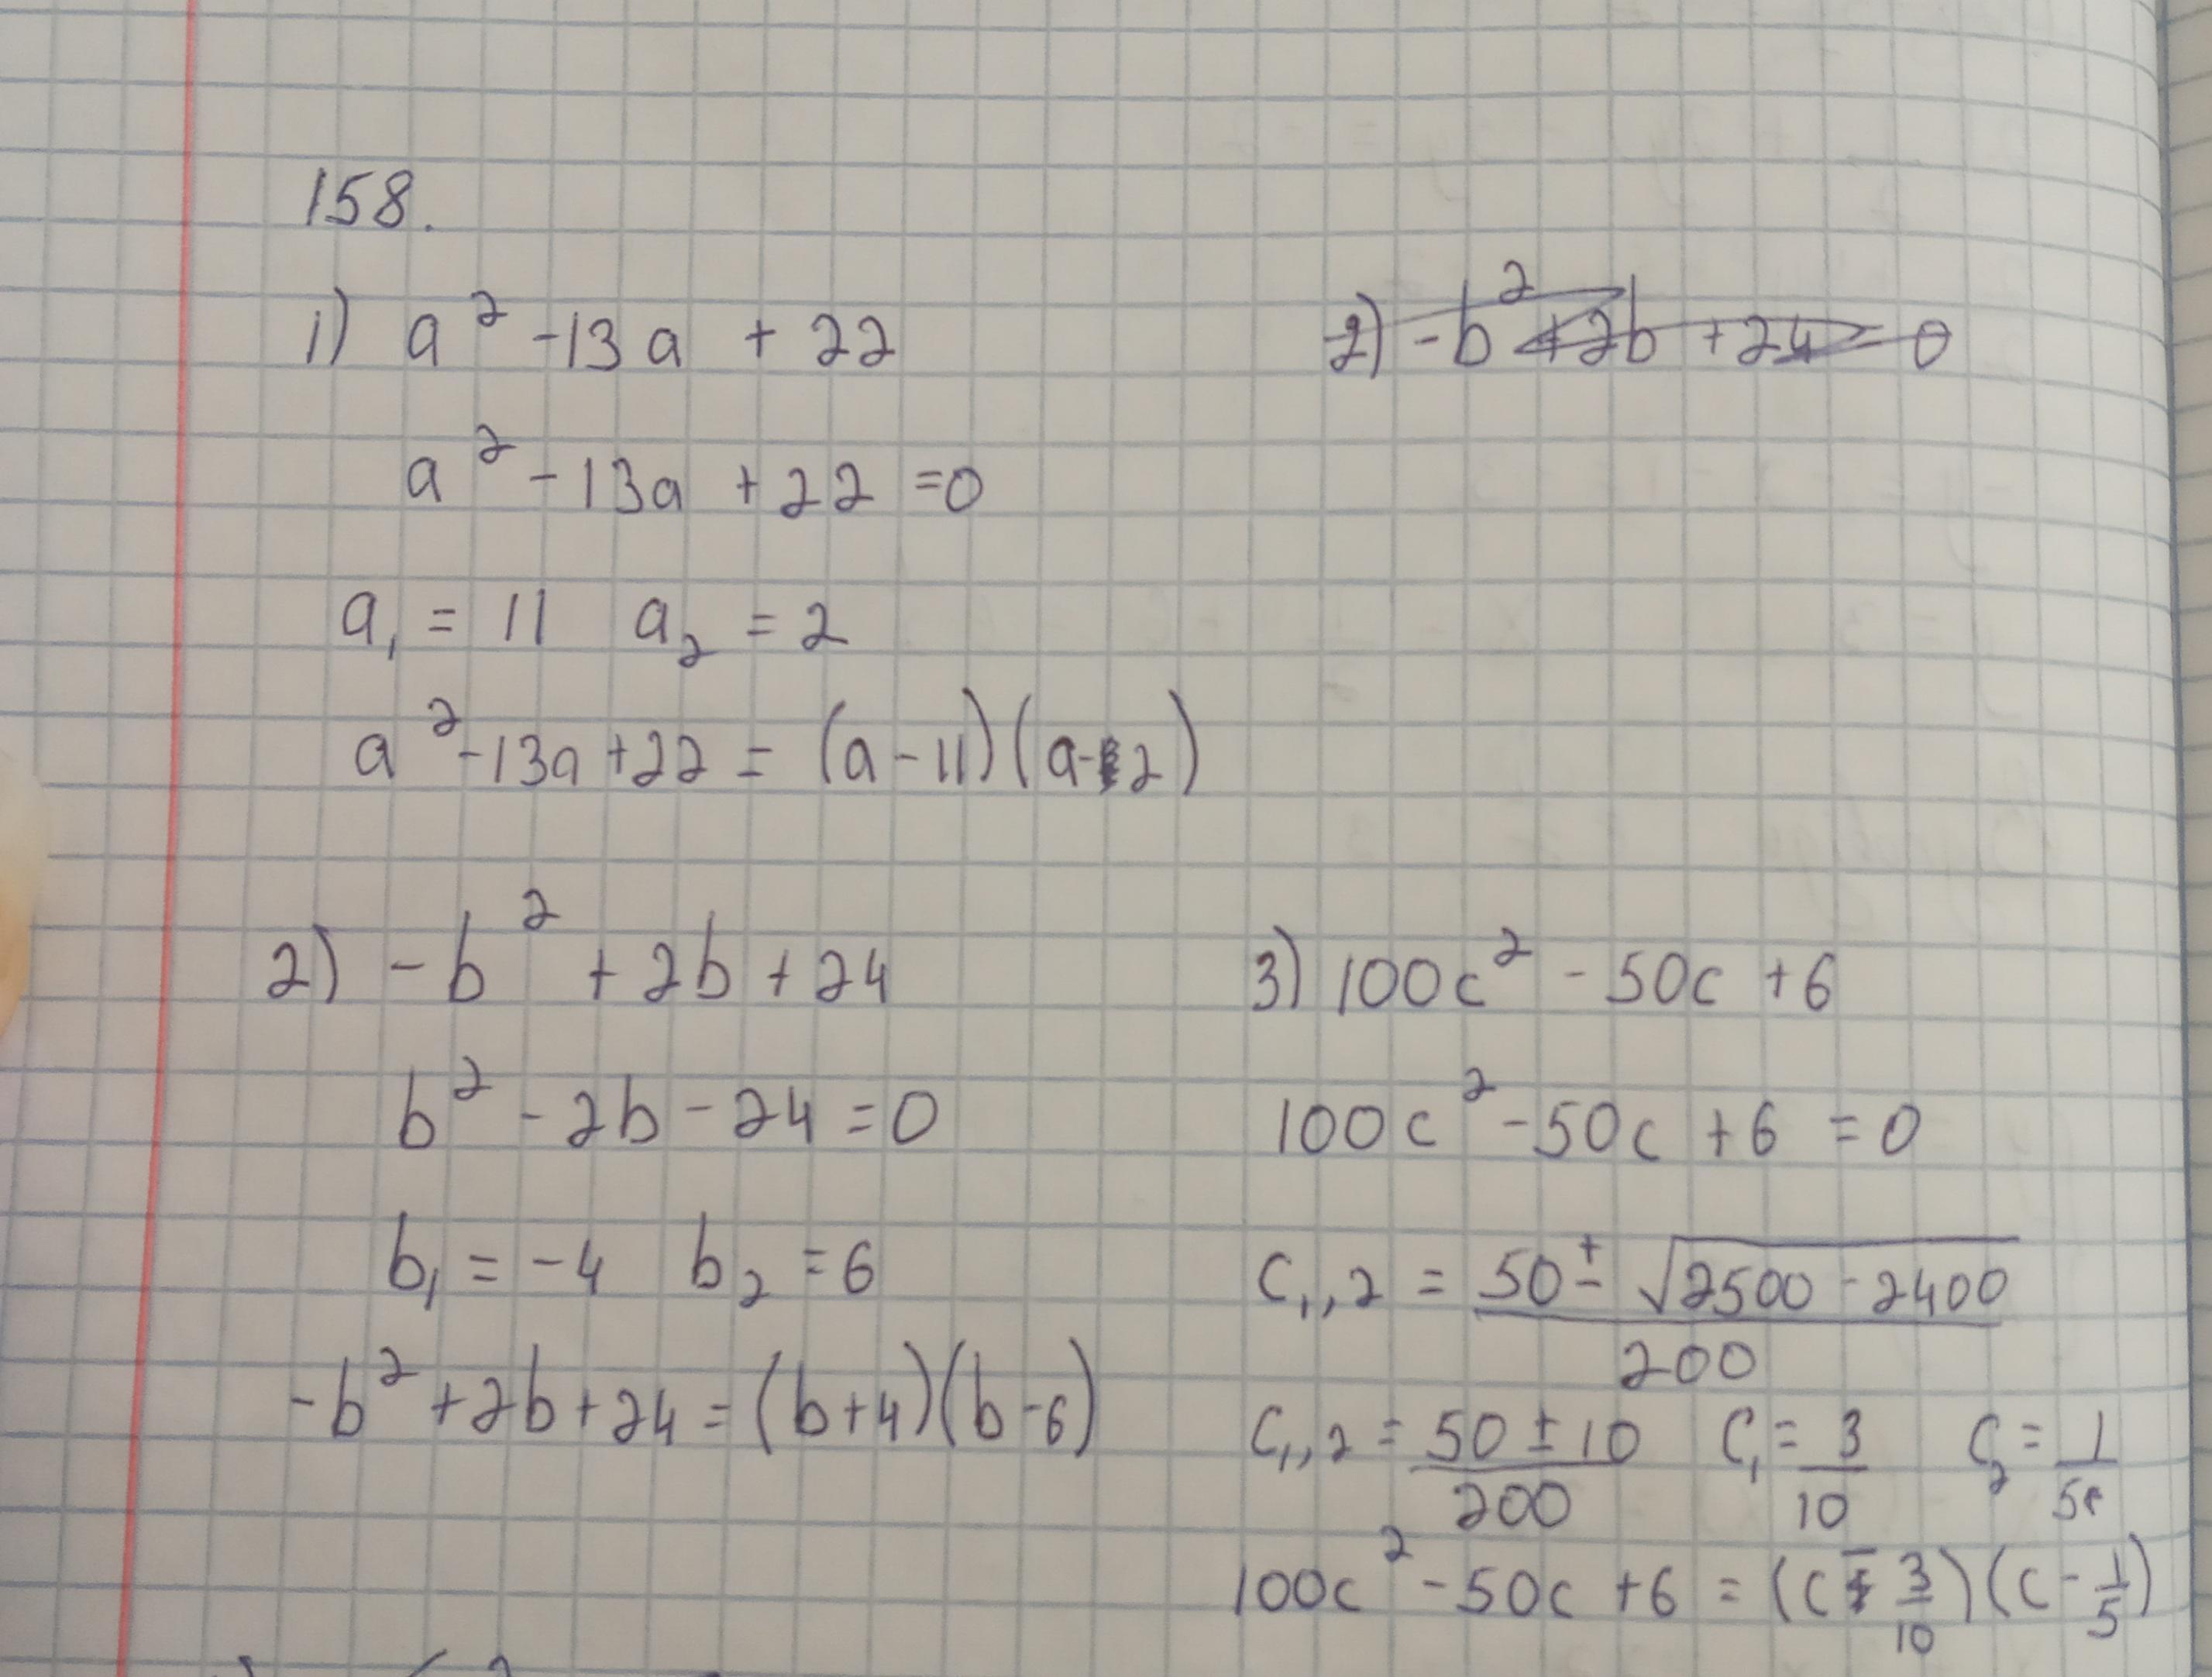 158.
1) a² - 13a + 22
a² - 13a + 22 = 0
a₁ = 11 a₂ = 2
a² - 13a + 22 = (a - 11)(a - 2)
2) -b² + 2b + 24 = 0
2) -b² + 2b + 24
b² - 2b - 24 = 0
b₁ = -4 b₂ = 6
-b² + 2b + 24 = (b + 4)(b - 6)
3) 100c² - 50c + 6
100c² - 50c + 6 = 0
c₁,,₂ = (50 ± √(2500 - 2400))/200
c₁,,₂ = (50 ± 10)/200 c₁ = 3/10 c₂ = 1/5
100c² - 50c + 6 = (c - 3/10)(c - 1/5)